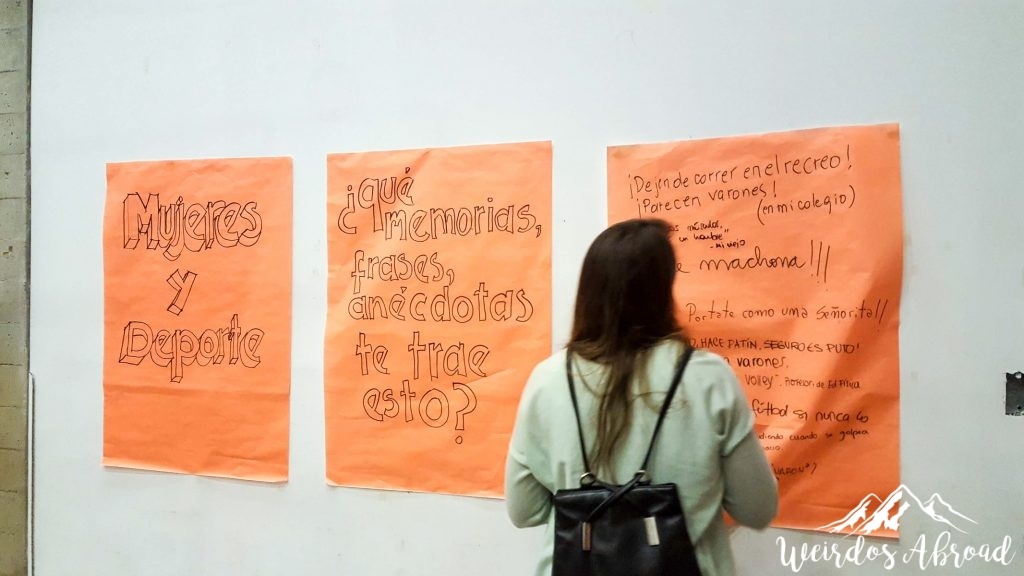 Mujeres
y
Deporte
¿qué
memorias,
frases,
anécdotas
te trae
esto?
¡Dejen de correr en el recreo!
¡Parecen varones!
(en mi colegio)
un hombre"
- mi viejo
machona!!!
Portate como una Señorita!!
HACE PATÍN, SEGURO ES PUTO!
varones,
VOLLEY". Profesor de Ed Física
fútbol ya nunca lo
cuando se golpea
"VARON"?
Weirdos Abroad